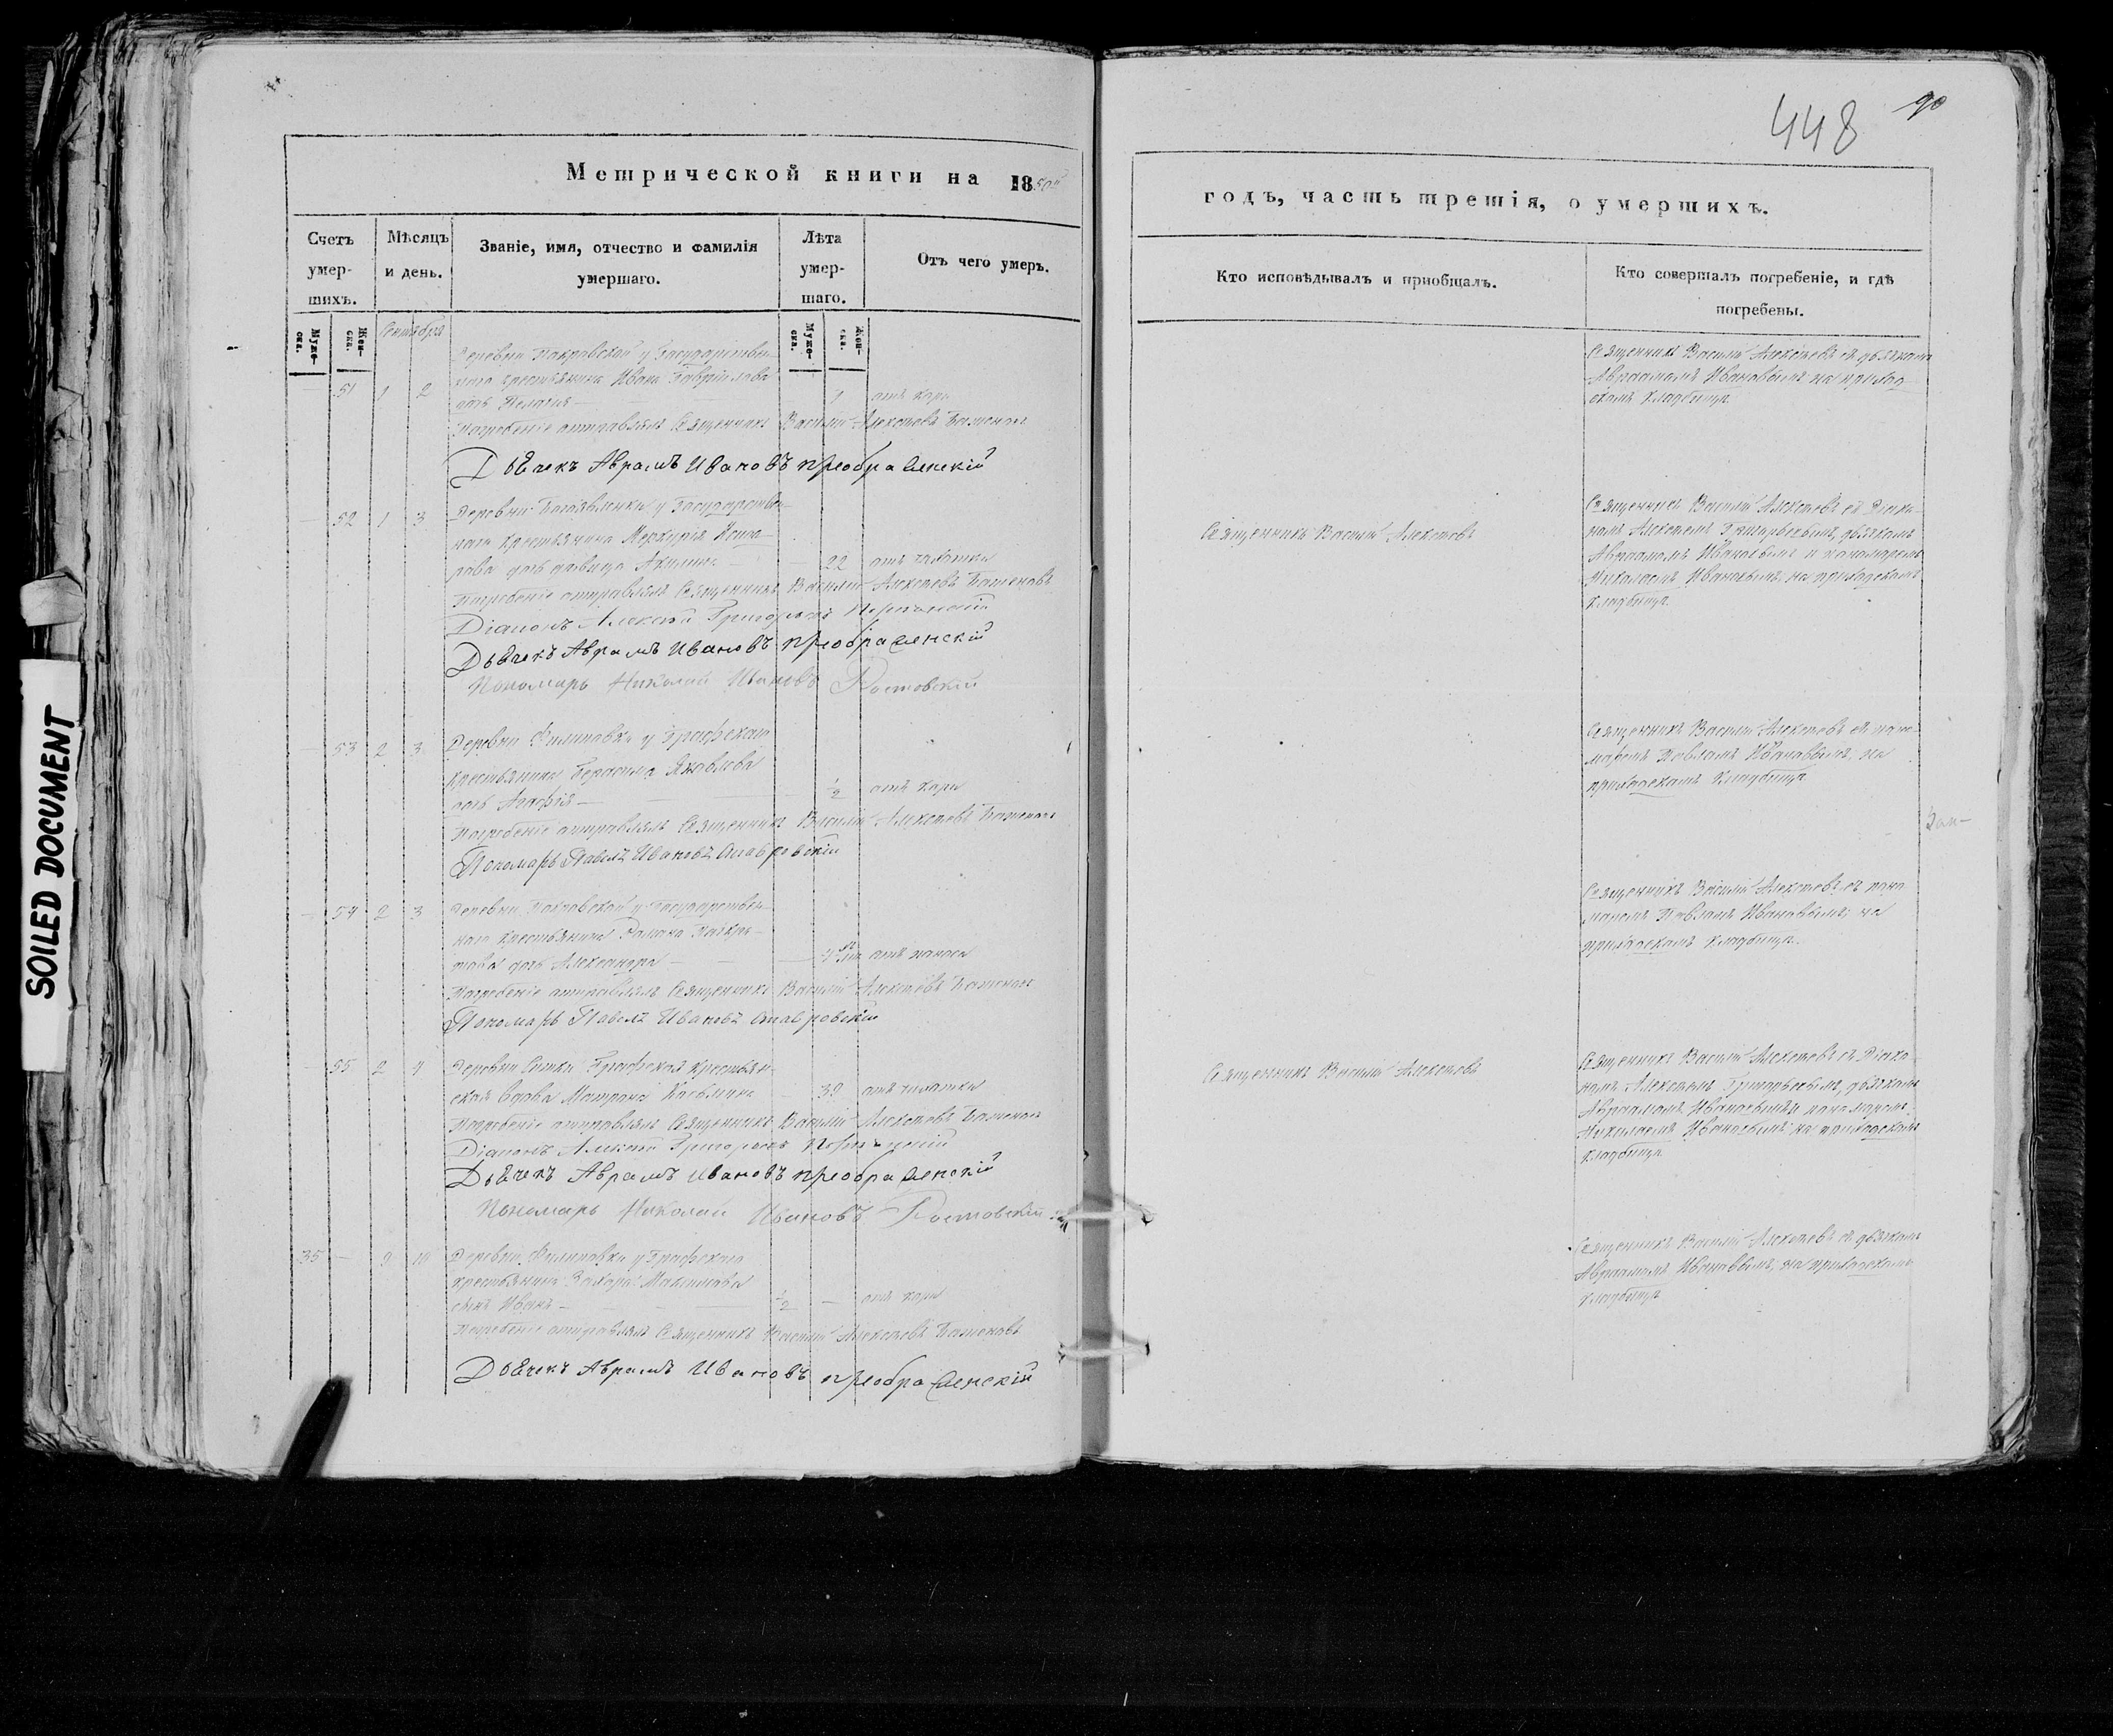 448 90
Метрической книги на 1850й
годъ, часть третія, о умершихъ.
Счетъ умер-шихъ.
Мѣсяцъ и день.
Званіе, имя, отчество и фамилія умершаго.
Лѣта умер-шаго.
Отъ чего умеръ.
Кто исповѣдывалъ и пріобщалъ.
Кто совершалъ погребеніе, и гдѣ погребены.
Муже-ска.
Жен-ска.
Сентября
Муже-ска.
Жен-ска.
Деревни Покровской у Государствен-
51 1 2 наго крестьянина Ивана Гаврилова
дочь Пелагія — отъ кори
Погребеніе отправлялъ Священникъ Василій Алексѣевъ Баженовъ
Дьячекъ Аврамъ Ивановъ преображенскій
Священникъ Василій Алексѣевъ съ дьячкомъ
Авраамомъ Ивановымъ на приход-
скомъ кладбищѣ
— 52 1 3 Деревни Богоявленки у Государствен-
наго крестьянина Меркурія
дочь дѣвица Акилина — 22 отъ чахотки
Погребеніе отправлялъ Священникъ Василій Алексѣевъ Баженовъ
Діаконъ Алексѣй Григорьевъ
Дьячекъ Аврамъ Ивановъ преображенскій
Пономарь Николай Ивановъ Ростовскій
Священникъ Василій Алексѣевъ
Священникъ Василій Алексѣевъ съ Діако-
номъ Алексѣемъ Григорьевымъ, дьячкомъ
Авраамомъ Ивановымъ и пономаремъ
Николаемъ Ивановымъ, на приходскомъ
кладбищѣ.
— 53 2 3 Деревни Филиповки у Графскаго
крестьянина Герасима Яковлева
дочь Агафія — 1/2 отъ кори
Погребеніе отправлялъ Священникъ Василій Алексѣевъ Баженовъ
Пономарь Павелъ Ивановъ Ставровскій
Священникъ Василій Алексѣевъ съ поно-
маремъ Павломъ Ивановымъ, на
приходскомъ кладбищѣ
— 54 2 3 Деревни Покровской у Государствен-
наго крестьянина Романа
дочь Александра — отъ поноса
Погребеніе отправлялъ Священникъ Василій Алексѣевъ Баженовъ
Пономарь Павелъ Ивановъ Ставровскій
Священникъ Василій Алексѣевъ съ поно
маремъ Павломъ Ивановымъ, на
приходскомъ кладбищѣ.
— 55 2 4 Деревни Графская крестьян-
ская вдова Матрона — 39 отъ чахотки
Погребеніе отправлялъ Священникъ Василій Алексѣевъ Баженовъ
Діаконъ Алексѣй Григорьевъ
Дьячекъ Аврамъ Ивановъ преображенскій
Пономарь Николай Ивановъ Ростовскій
Священникъ Василій Алексѣевъ
Священникъ Василій Алексѣевъ съ Діако
номъ Алексѣемъ Григорьевымъ, дьячкомъ
Авраамомъ Ивановымъ и пономаремъ
Николаемъ Ивановымъ на приходскомъ
кладбищѣ
35 — 9 10 Деревни Филиповки у Графскаго
крестьянина Захара Максимова
сынъ Иванъ — 1/2 — отъ кори
Погребеніе отправлялъ Священникъ Василій Алексѣевъ Баженовъ
Дьячекъ Аврамъ Ивановъ преображенскій
Священникъ Василій Алексѣевъ съ дьячкомъ
Авраамомъ Ивановымъ, на приходскомъ
кладбищѣ
SOILED DOCUMENT